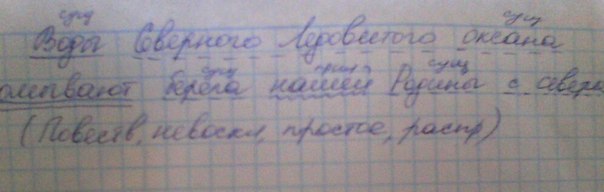 сущ сущ
Воды Северного Ледовитого океана
сущ сущ
омывают берега нашей Родины с севера
(Повеств, невоскл, простое, распр)